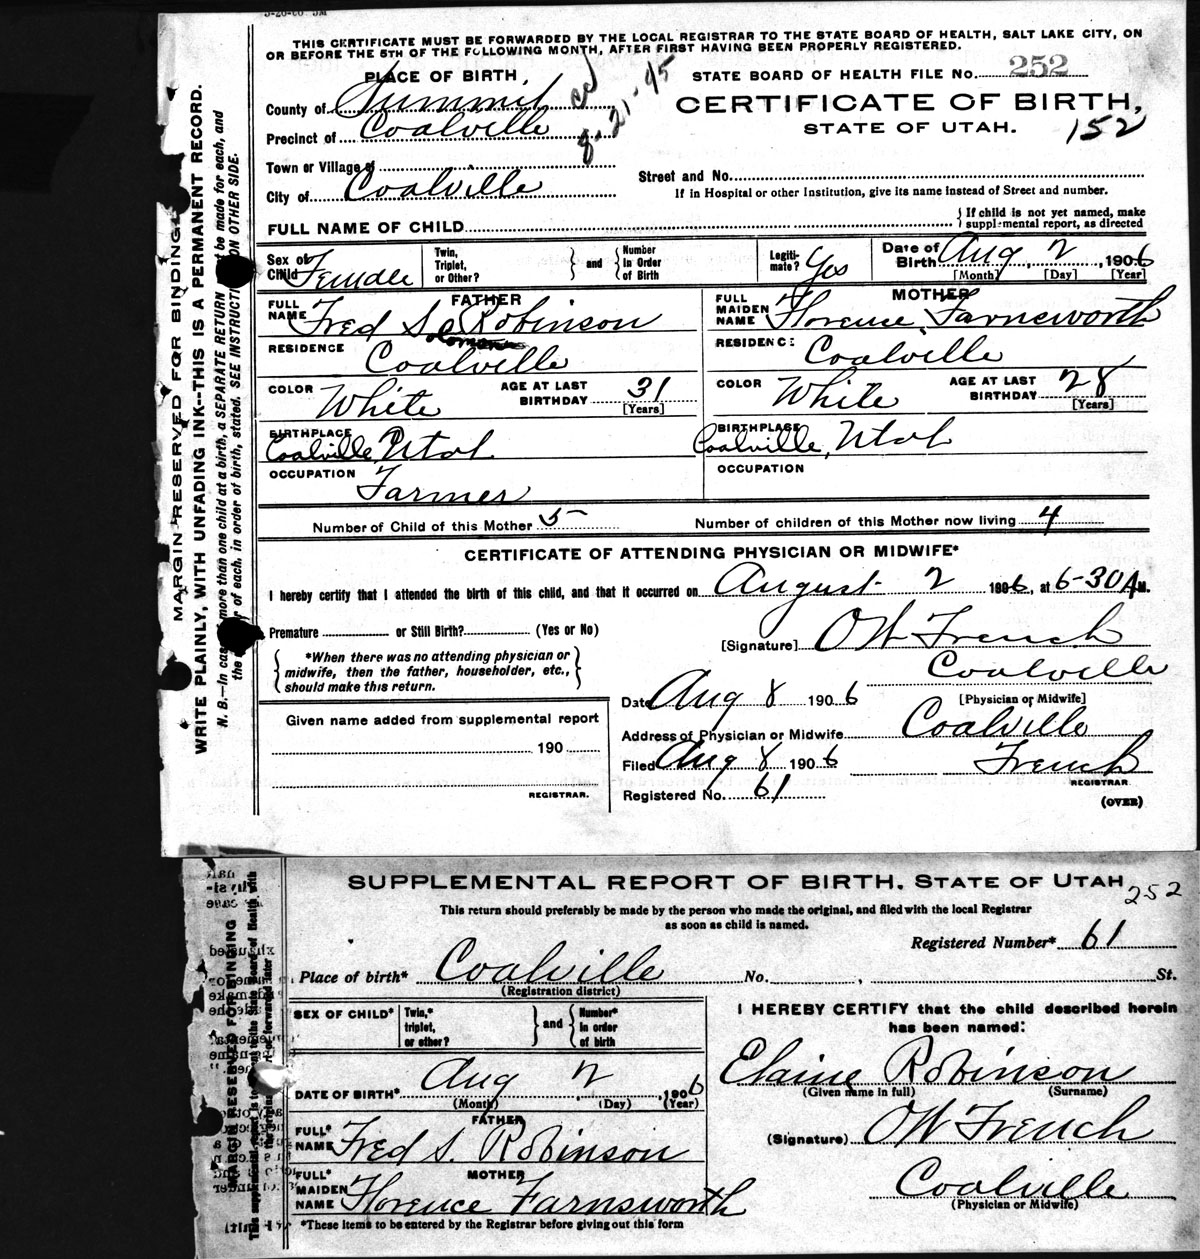 THIS CERTIFICATE MUST BE FORWARDED BY THE LOCAL REGISTRAR TO THE STATE BOARD OF HEALTH, SALT LAKE CITY, ON
OR BEFORE THE 5TH OF THE FOLLOWING MONTH, AFTER FIRST HAVING BEEN PROPERLY REGISTERED.
PLACE OF BIRTH,
STATE BOARD OF HEALTH FILE No. 252
County of Summit
8-21-45
CERTIFICATE OF BIRTH,
Precinct of Coalville
STATE OF UTAH.
152
Town or Village of
Street and No.
City of Coalville
If in Hospital or other Institution, give its name instead of Street and number.
FULL NAME OF CHILD
If child is not yet named, make
supplemental report, as directed
Sex of Child Female
Twin, Triplet, or Other?
and
Number in Order of Birth
Legitimate? Yes
Date of Birth Aug 2, 1906
[Month] [Day] [Year]
FATHER
FULL NAME Fred S. Robinson
Solomon
RESIDENCE Coalville
COLOR White
AGE AT LAST BIRTHDAY 31
[Years]
BIRTHPLACE Coalville Utah
OCCUPATION Farmer
MOTHER
FULL MAIDEN NAME Florence Farnsworth
RESIDENCE Coalville
COLOR White
AGE AT LAST BIRTHDAY 28
[Years]
BIRTHPLACE Coalville, Utah
OCCUPATION
Number of Child of this Mother 5
Number of children of this Mother now living 4
CERTIFICATE OF ATTENDING PHYSICIAN OR MIDWIFE*
I hereby certify that I attended the birth of this child, and that it occurred on August 2 1906, at 6-30 A M.
Premature or Still Birth? (Yes or No)
[Signature] O W French
Coalville
[Physician or Midwife]
*When there was no attending physician or
midwife, then the father, householder, etc.,
should make this return.
Date Aug 8 1906
Address of Physician or Midwife Coalville
Given name added from supplemental report
190
REGISTRAR.
Filed Aug 8 1906
French
REGISTRAR
Registered No. 61
(OVER)
MARGIN RESERVED FOR BINDING
WRITE PLAINLY, WITH UNFADING INK--THIS IS A PERMANENT RECORD.
N. B.—In case more than one child at a birth, a SEPARATE RETURN be made for each, and
the of each, in order of birth, stated. SEE INSTRUCTIONS ON OTHER SIDE.
SUPPLEMENTAL REPORT OF BIRTH. STATE OF UTAH
252
This return should preferably be made by the person who made the original, and filed with the local Registrar
as soon as child is named.
Registered Number* 61
Place of birth* Coalville No. , St.
(Registration district)
SEX OF CHILD*
Twin,* triplet, or other?
and
Number* in order of birth
DATE OF BIRTH* Aug 2, 1906
(Month) (Day) (Year)
FATHER
FULL* NAME Fred S. Robinson
MOTHER
FULL* MAIDEN NAME Florence Farnsworth
*These items to be entered by the Registrar before giving out this form
I HEREBY CERTIFY that the child described herein
has been named:
Elaine Robinson
(Given name in full) (Surname)
(Signature) O W French
Coalville
(Physician or Midwife)
MARGIN RESERVED FOR BINDING